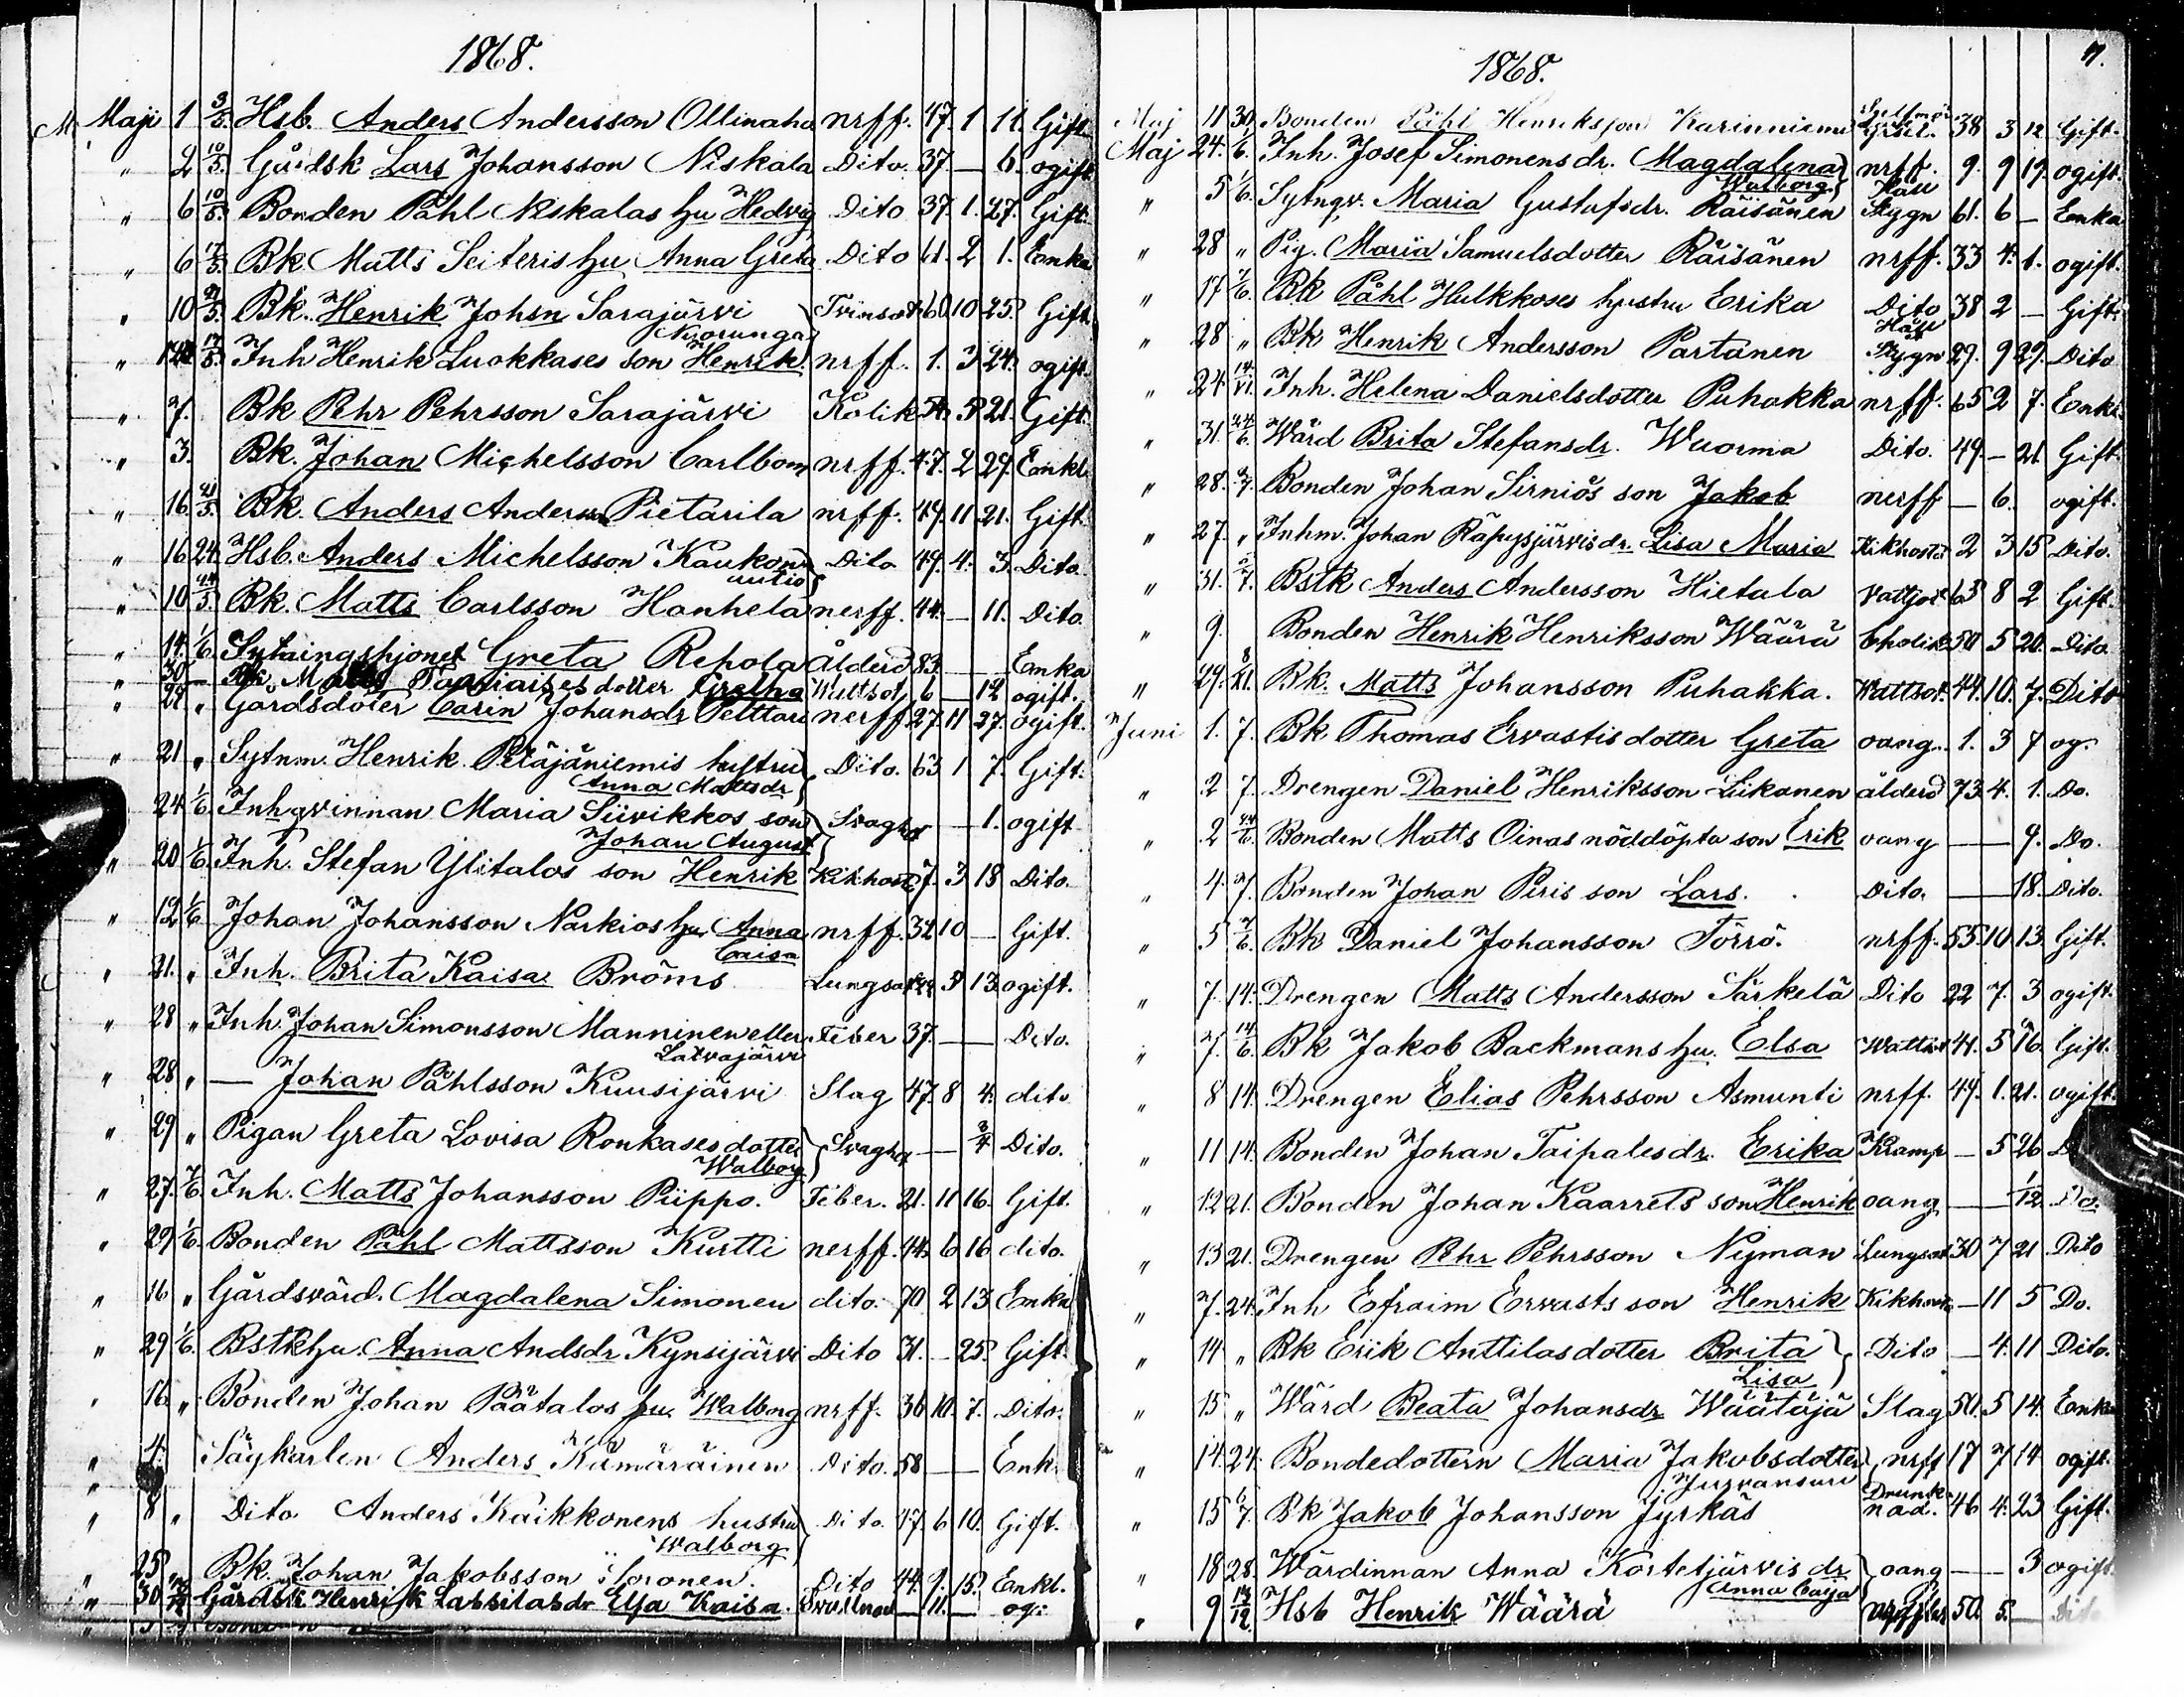 1868.
Maji 1 3/5. Hsb. Anders Andersson Ollinaho nrff. 47. 1 11. Gift.
" 2 10/5. Gårdsk Lars Johansson Niskala Dito. 37. — 6. ogift
" 6 10/5. Bonden Påhl Niskalas hu Hedvig Dito 37. 1. 27. Gift.
" 6 17/5. Bk Matts Seiteris hu Anna Greta Dito 61. 2 1. Enka
" 10 21/5. Bk. Henrik Johsn Sarajärvi 60 10 25. Gift
" 17/5. Inh Henrik Luokkases son Henrik nrff. 1. 3 24. ogift.
" 7. Bk Pehr Pehrsson Sarajärvi Kolik 54. 5 21. Gift.
" 3. Bk. Johan Michelsson Carlbom nrff. 47. 2 29. Enkl.
" 16. 21/5. Bk. Anders Anderss Pietarila nrff. 49. 11 21. Gift.
" 16 24. Hsb. Anders Michelsson Kaukon Dito 49. 4. 3. Dito.
autio
" 10 24/5. Bk. Matts Carlsson Hanhela nerff. 44. — 11. Dito
" 14. 1/6. Sytningshjonet Greta Repola Ålderd 83. Enka
" 30 — dotter Gretha Wattsot 6 — 12 ogift.
" 28 " Gårdsdoter Carin Johansdr Pelttari nerff. 27. 11 27. ogift.
" 21 " Sytnm. Henrik Peräjäniemis hustru Dito. 63 1 7. Gift.
Anna Mattsdr
24 1/6. Inhqvinnan Maria Siivikkos son Svaghet — 1. ogift
Johan August
" 20 1/6. Inh. Stefan Ylitalos son Henrik Kikhost. 7. 3 18 Dito.
" 12 1/6 Johan Johansson Narkios hu Anna nrff. 32 10 — Gift.
Caisa
" 21. " Inh. Brita Kaisa Broms Lungsot 5 13. ogift.
" 28 " Inh. Johan Simonsson Manninen eller Feber 37. — Dito.
Latvajärvi
" 28 " — Johan Påhlsson Kuusijärvi Slag 47. 8 4. dito
" 29 " Pigan Greta Lovisa Ronkases dotter Svaghet — 3/4 Dito.
Walborg
" 27. 7/6. Inh. Matts Johansson Piippo. Feber. 21. 11 16. Gift.
" 29 1/6. Bonden Påhl Mattsson Kurtti nerff. 44. 6 16 dito.
" 16 " Gårdsvärd. Magdalena Simonen dito. 70 2 13 Enka
" 29 1/6. Bstk hu. Anna Andsdr Kynsijärvi Dito 31. — 25. Gift
" 16. " Bonden Johan Päätalos hu. Walborg nrff. 36 10. 7. Dito.
" 4. Sågkarlen Anders Kämäräinen Dito. 58 — Enk.
" 8 " Dito Anders Kaikkonens hustru Dito. 47. 6 10. Gift.
Walborg
" 25 " Bk. Johan Jakobsson Soronen. Dito 44. 9. 15. Enkl.
" 30 Gårdsk Henrik Lassilas dr Elsa Kaisa. — 11. — og.
7.
1868.
Maj 11 30 Bonden Påhl Henriksson Karinniemi 38 3 12 Gift.
Maj 24. 1/6. Inh. Josef Simonens dr. Magdalena nrff. 9. 9 19. ogift.
Walborg
" 5 1/6. Sytnqv. Maria Gustafsdr. Räisänen Håll Stygn 61. 6 — Enka
" 28 " Pig. Maria Samuelsdotter Räisänen nrff. 33 4. 1. ogift.
" 17 7/6. Bk Påhl Hulkkoses hustru Erika Dito 38 2 — Gift.
" 28 " Bk Henrik Andersson Partanen Håll Stygn 29. 9 29. Dito
" 24 14/6. Inh. Helena Danielsdotter Puhakka nrff. 65 2 7. Enka
" 31. 24/6. Wärd Brita Stefansdr. Wuorma Dito. 49. — 21. Gift.
" 28. 2/7. Bonden Johan Sirniös son Jakob nerff — 6. ogift.
" 27. " Inhm. Johan Räpysjärvis dr. Lisa Maria Kikhosta 2 3 15 Dito.
" 31. 2/7. Bstk Anders Andersson Hietala Vattsot 63 8 2 Gift.
" 9. Bonden Henrik Henriksson Wäärä Cholik 50 5 20. Dito
" 29. Bk. Matts Johansson Puhakka. Wattsot. 44. 10. 7. Dito
Juni 1. 7. Bk Thomas Ervastis dotter Greta oang. 1. 3 7 og.
" 2 7. Drengen Daniel Henriksson Liikanen ålderd 73. 4. 1. Do.
" 2 24/6. Bonden Matts Oinas nöddöpta son Erik oang — 9. Do.
" 4. Bonden Johan Piris son Lars. Dito. 18. Dito.
" 5 7/6. Bk Daniel Johansson Törrö. nrff. 55 10 13. Gift.
" 7. 14. Drengen Matts Andersson Särkelä Dito 22 7. 3 ogift.
" 7. 14/6. Bk Jakob Backmans hu. Elsa Wattsot 41. 5 16. Gift.
" 8 14. Drengen Elias Pehrsson Asmunti nrff. 49. 1. 21. ogift.
" 11 14. Bonden Johan Taipales dr. Erika Kramp — 5 26
" 12 21. Bonden Johan Kaarrets son Henrik oang — 1/12. Do.
" 13 21. Drengen Pehr Pehrsson Nyman Lungsot 30 7 21. Dito
" 7. 24. Inh Efraim Ervasts son Henrik Kikhosta — 11 5 Do.
" 14 " Bk Erik Anttilas dotter Brita Dito — 4. 11 Dito.
Lisa
" 15 " Wärd Beata Johansdr Wäätäjä Slag 50. 5 14. Enka
" 14. 24. Bondedottern Maria Jakobsdotter nrff 17 7 14 ogift.
Jurvansuu
" 15 6/7. Bk Jakob Johansson Jyrkäs Drunknad. 46 4. 23 Gift.
" 18 28. Wärdinnan Anna Kortetjärvis dr oang — 3 ogift
Anna Caija
" 9 13/12. Hsb Henrik Wäärä 50. 5. — Dito